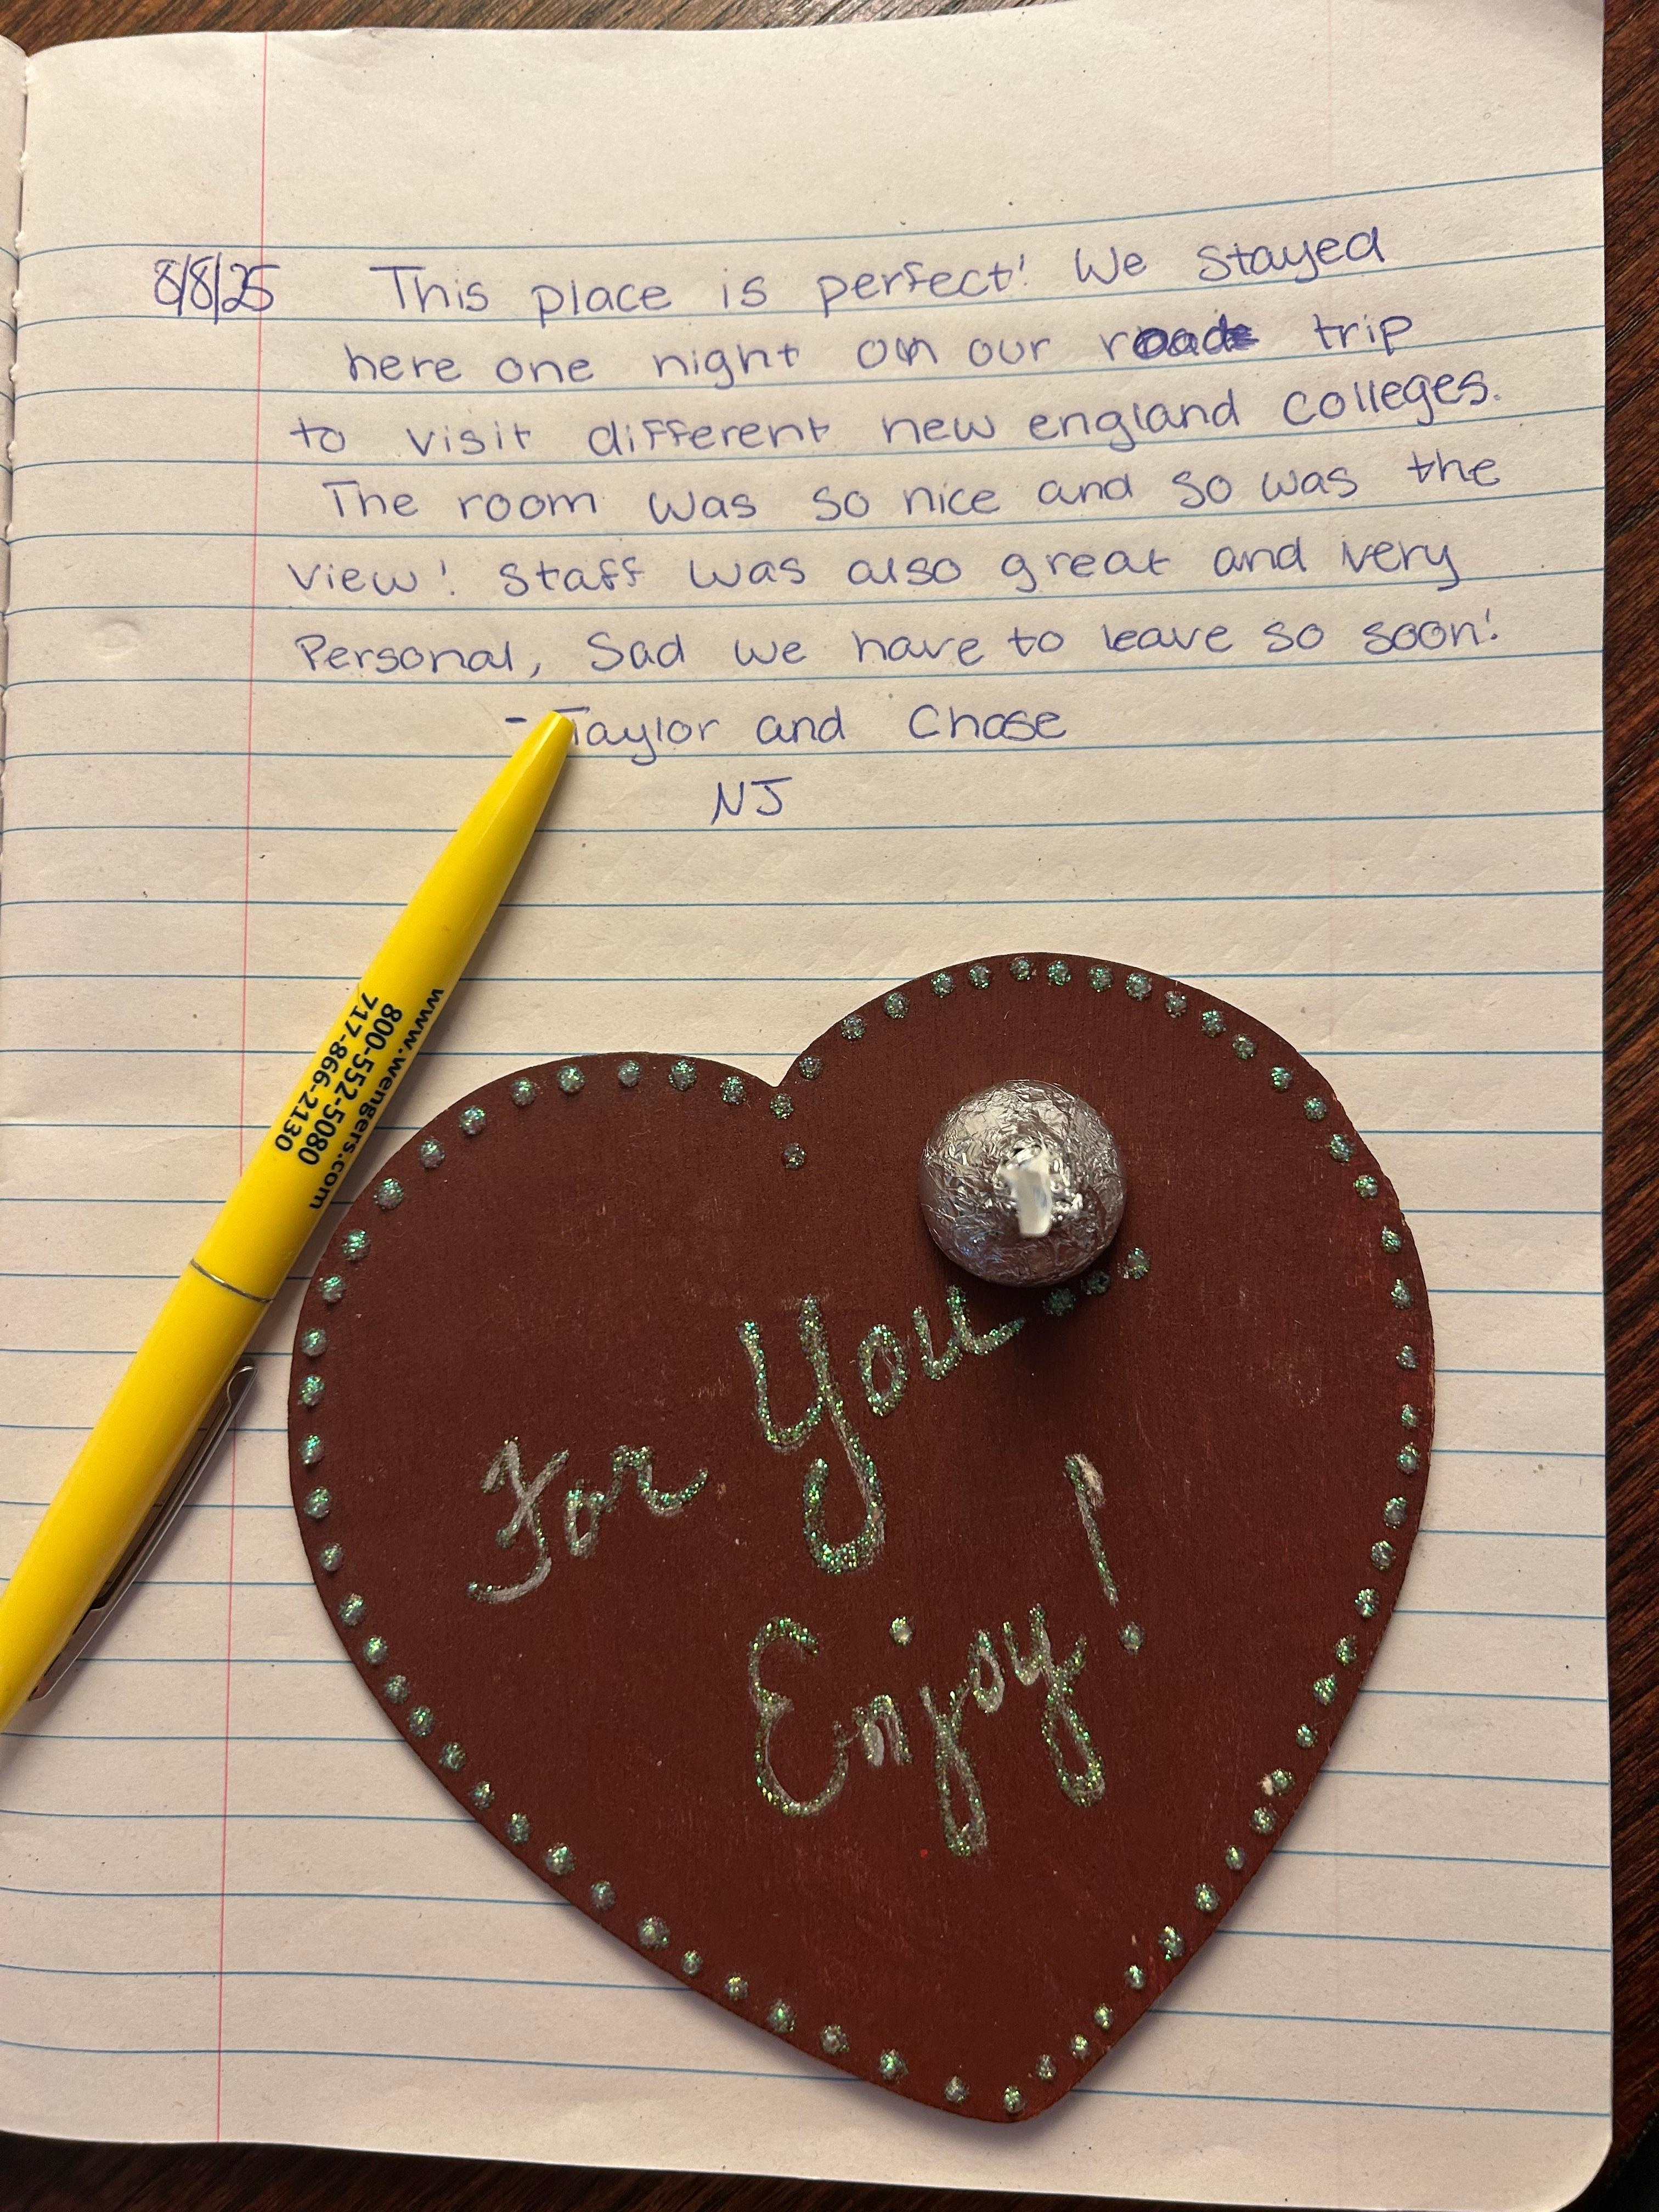 8/8/25 This place is perfect! We stayed
here one night on our road trip
to visit different new england colleges.
The room was so nice and so was the
view! Staff was also great and very
Personal, Sad we have to leave so soon!
- Taylor and Chase
NJ
www.wengers.com
800-552-5080
717-866-2130
For You...
Enjoy!